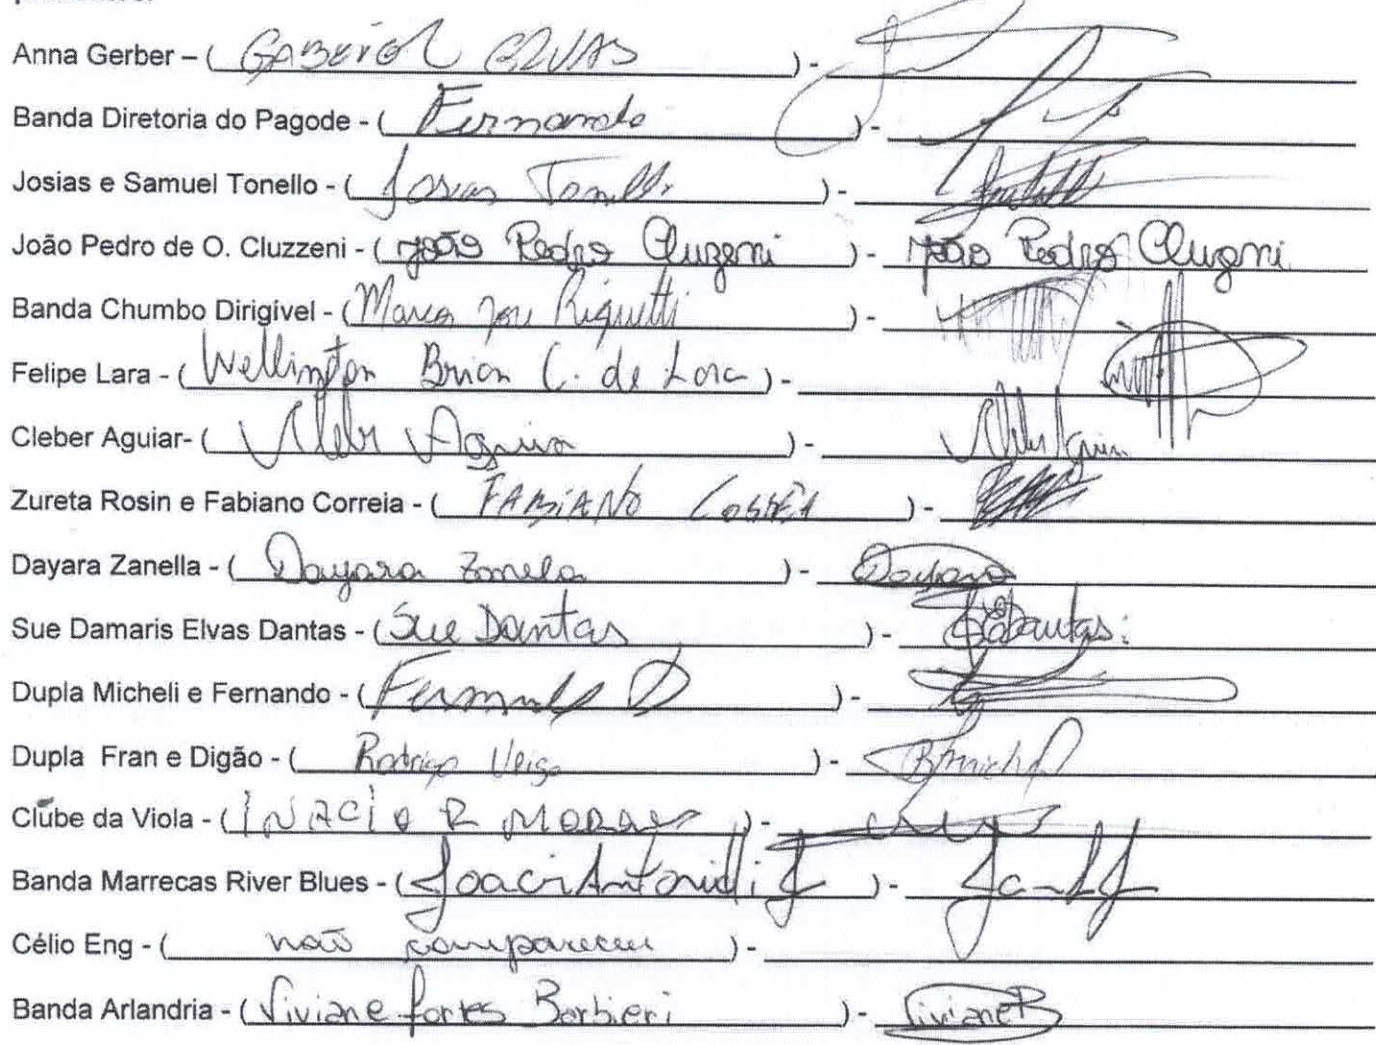 Anna Gerber – ( GABRIEL ELVAS ) -
Banda Diretoria do Pagode - ( Fernando ) -
Josias e Samuel Tonello - ( Josias Tonello ) -
João Pedro de O. Cluzzeni - ( João Pedro Cluzeni ) - João Pedro Cluzeni
Banda Chumbo Dirigivel - ( Marco José Riguetti ) -
Felipe Lara - ( Wellington Brian C. de Lara ) -
Cleber Aguiar- ( Cleber Aguiar ) - Cleber Aguiar
Zureta Rosin e Fabiano Correia - ( FABIANO ) -
Dayara Zanella - ( Dayara Zanela ) - Dayara
Sue Damaris Elvas Dantas - ( Sue Dantas ) - Dantas
Dupla Micheli e Fernando - ( Fernando D ) -
Dupla Fran e Digão - ( Rodrigo Veiga ) -
Clube da Viola - ( INACIO R MORAES ) -
Banda Marrecas River Blues - ( Joacir Antonielli J ) -
Célio Eng - ( não compareceu ) -
Banda Arlandria - ( Viviane Fortes Barbieri ) - Viviane B